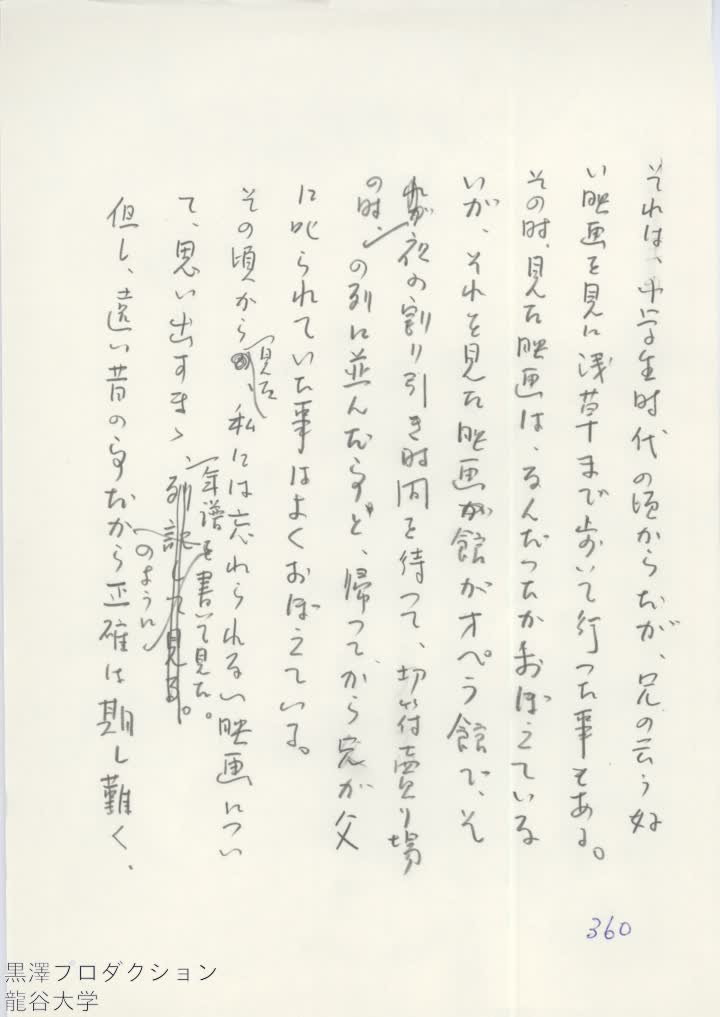 それは、中学生時代の頃からだが、兄の云うな
い映画を見に浅草まで歩いて行つた事もある。
その時、見た映画は、なんだつたかおぼえていな
いが、それを見た映画館がオペラ館で、そ
れが夜の割り引き時間を待つて、切符売り場
の時、の列に並んだ事と、帰つてから兄が父
に叱られていた事はよくおぼえている。
その頃から見た、私には忘れられない映画につい
て、思い出すまゝ、年譜のように書いて見た。
列記して見る。
但し、遠い昔の事だから正確は期し難く、
360
黒澤プロダクション
龍谷大学